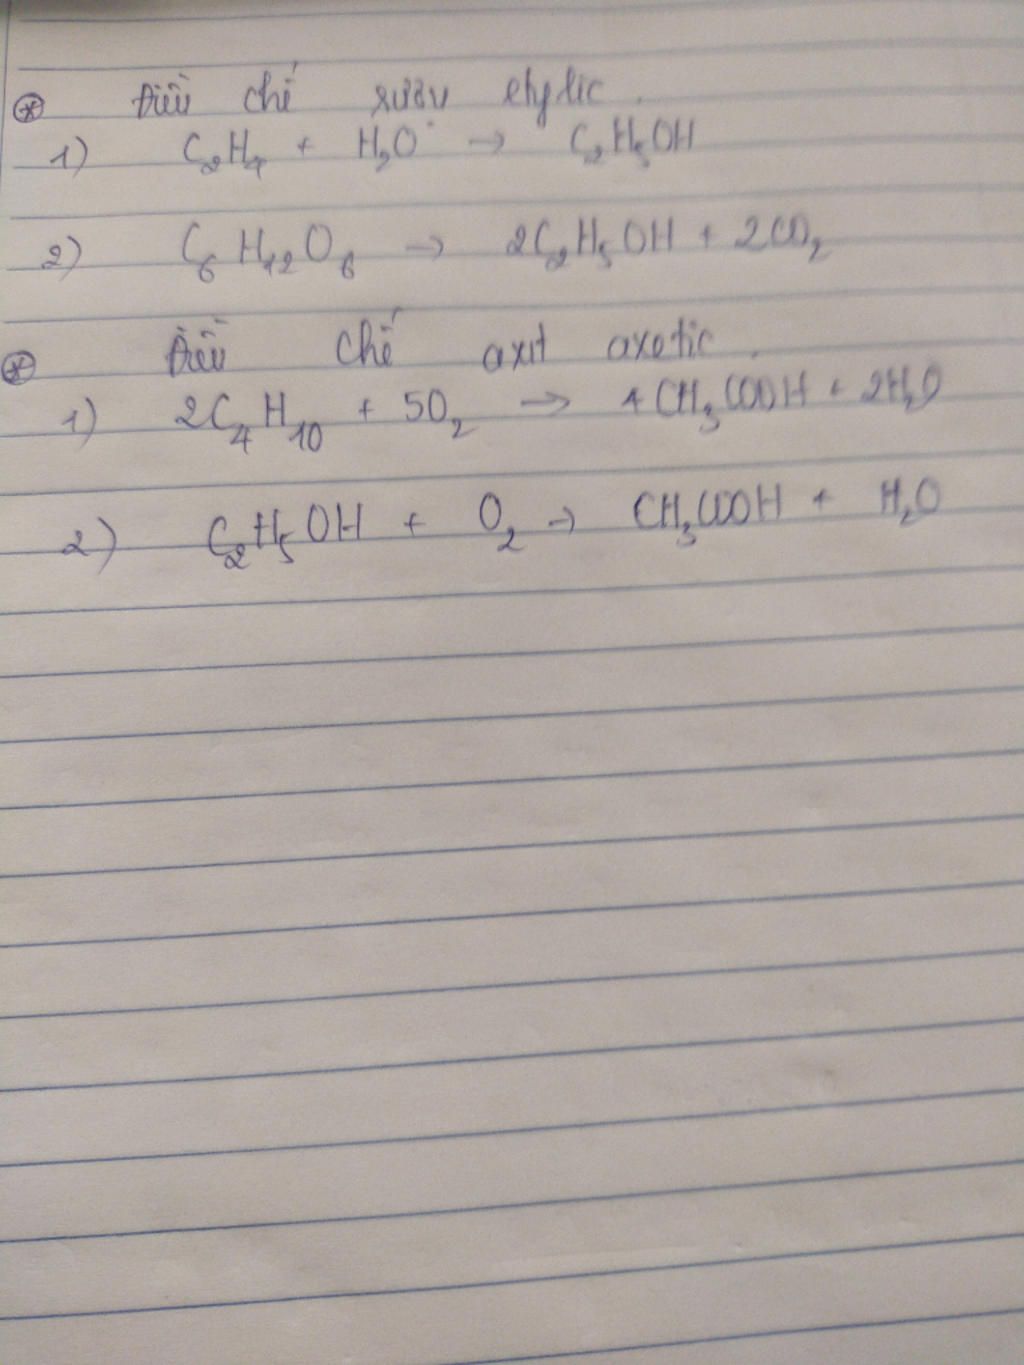 ⊛ Điều chế rượu etylic.
1) C₂H₄ + H₂O → C₂H₅OH
2) C₆H₁₂O₆ → 2C₂H₅OH + 2CO₂
⊛ Điều chế axit axetic.
1) 2C₄H₁₀ + 5O₂ → 4CH₃COOH + 2H₂O
2) C₂H₅OH + O₂ → CH₃COOH + H₂O